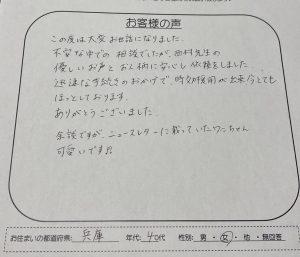 お客様の声
この度は大変お世話になりました。
不安な中での相談でしたが、西村先生の
優しいお声とお人柄に安心し依頼をしました。
迅速な手続きのおかげで、時効援用が出来今とても
ほっとしております。
ありがとうございました。
余談ですが、ニュースレターに載っていたワンちゃん
可愛いです!!
お住まいの都道府県: 兵庫 年代: 40代 性別: 男・女・他・無回答